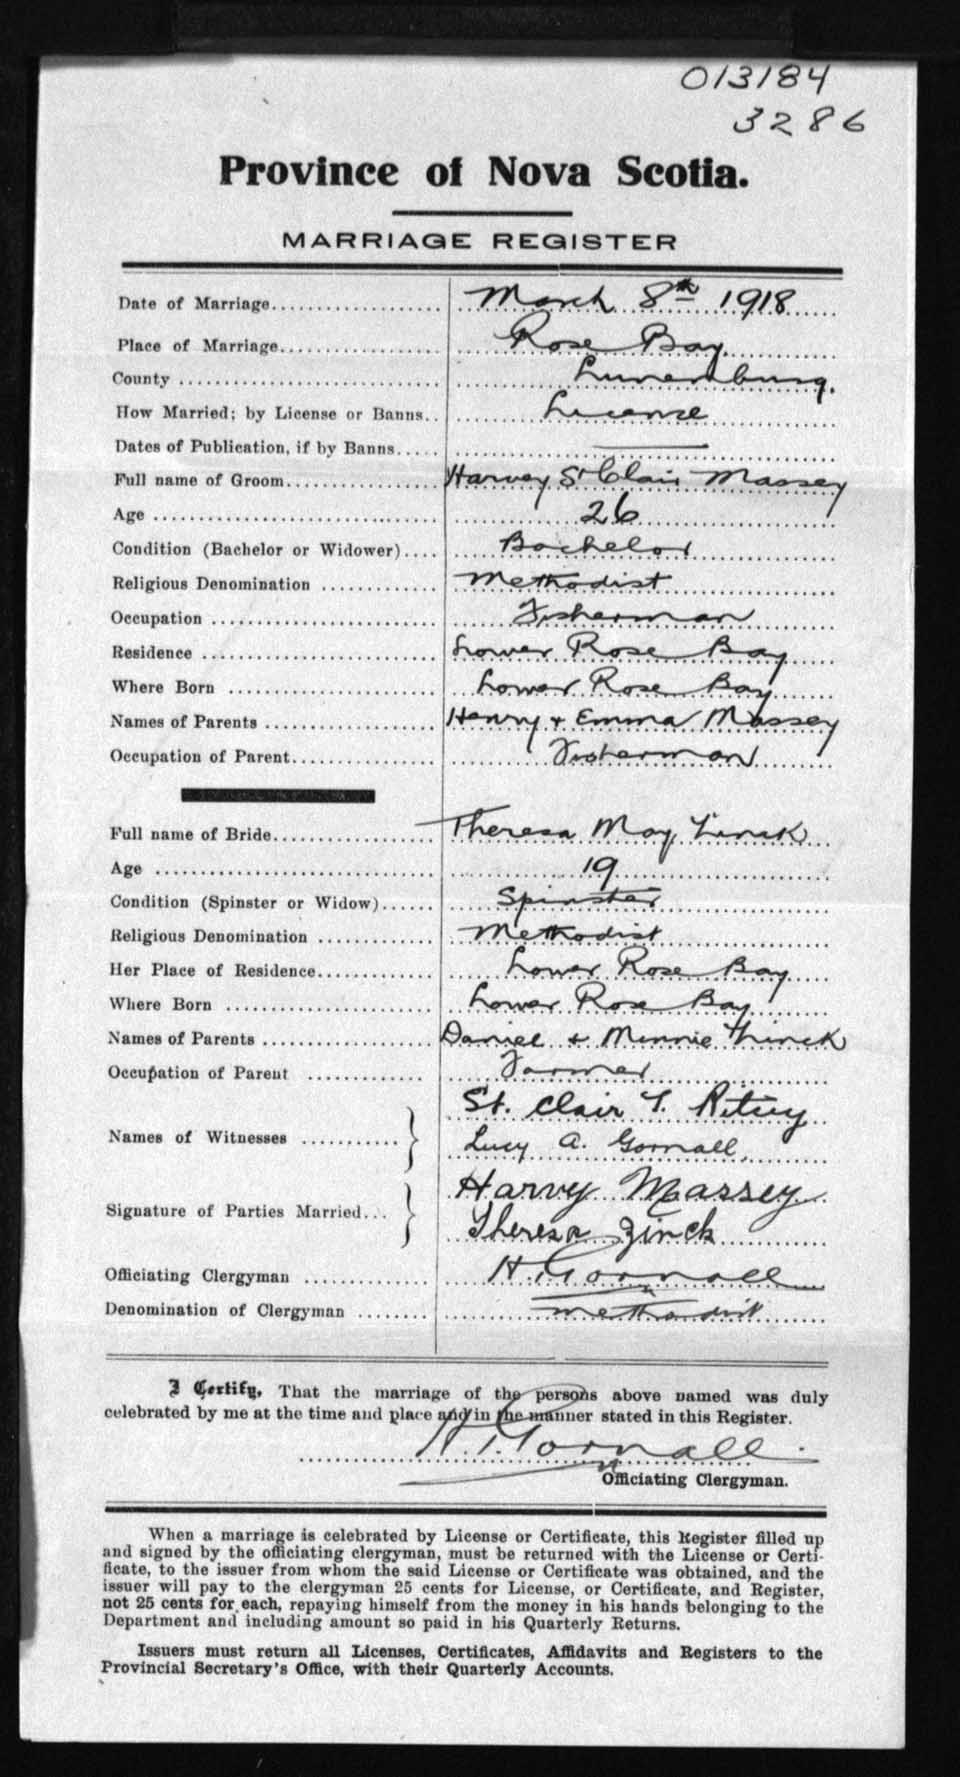 013184
3286
Province of Nova Scotia.
MARRIAGE REGISTER
Date of Marriage................... March 8th 1918
Place of Marriage.................. Rose Bay
County ............................ Lunenburg.
How Married; by License or Banns.. License
Dates of Publication, if by Banns..... ———
Full name of Groom................. Harvey St Clair Massey
Age ............................... 26
Condition (Bachelor or Widower).... Bachelor
Religious Denomination ............ Methodist
Occupation ........................ Fisherman
Residence ......................... Lower Rose Bay
Where Born ........................ Lower Rose Bay
Names of Parents .................. Henry + Emma Massey
Occupation of Parent............... Fisherman
Full name of Bride................. Theresa May Zinck
Age ............................... 19
Condition (Spinster or Widow)...... Spinster
Religious Denomination ............ Methodist
Her Place of Residence............. Lower Rose Bay
Where Born ........................ Lower Rose Bay
Names of Parents .................. Daniel + Minnie Zinck
Occupation of Parent .............. Farmer
St. Clair T. Ritcy
Names of Witnesses ...........
Lucy A. Gornall
Harvy Massey
Signature of Parties Married...
Theresa Zinck
Officiating Clergyman ............ H. Gornall
Denomination of Clergyman ........ Methodist
I Certify, That the marriage of the persons above named was duly
celebrated by me at the time and place and in the manner stated in this Register.
H. Gornall
Officiating Clergyman.
When a marriage is celebrated by License or Certificate, this Register filled up
and signed by the officiating clergyman, must be returned with the License or Certi-
ficate, to the issuer from whom the said License or Certificate was obtained, and the
issuer will pay to the clergyman 25 cents for License, or Certificate, and Register,
not 25 cents for each, repaying himself from the money in his hands belonging to the
Department and including amount so paid in his Quarterly Returns.
Issuers must return all Licenses, Certificates, Affidavits and Registers to the
Provincial Secretary's Office, with their Quarterly Accounts.